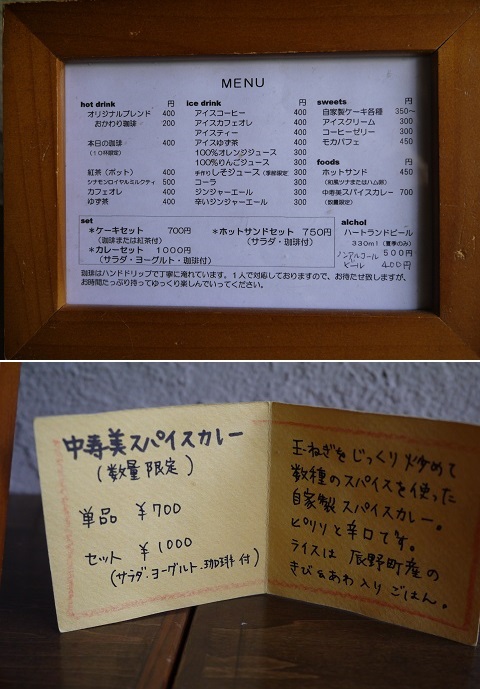 MENU
hot drink 円
オリジナルブレンド 400
おかわり珈琲 200
本日の珈琲 400
(10杯限定)
紅茶(ポット) 400
シナモンロイヤルミルクティ 500
カフェオレ 400
ゆず茶 400
ice drink 円
アイスコーヒー 400
アイスカフェオレ 400
アイスティー 400
アイスゆず茶 400
100%オレンジジュース 300
100%りんごジュース 300
手作りしそジュース(季節限定) 300
コーラ 300
ジンジャーエール 300
辛いジンジャーエール 300
sweets 円
自家製ケーキ各種 350~
アイスクリーム 300
コーヒーゼリー 300
モカパフェ 450
foods 円
ホットサンド 450
(和風ツナまたはハム卵)
中寿美スパイスカレー 700
(数量限定)
set
*ケーキセット 700円
(珈琲または紅茶付)
*カレーセット 1000円
(サラダ・ヨーグルト・珈琲付)
*ホットサンドセット 750円
(サラダ・珈琲付)
alchol
ハートランドビール
330ml(夏季のみ)
500円
ノンアルコールビール 400円
珈琲はハンドドリップで丁寧に淹れています。1人で対応しておりますので、お待たせ致しますが、
お時間たっぷり持ってゆっくり楽しんでいってください。
中寿美スパイスカレー
(数量限定)
単品 ¥700
セット ¥1000
(サラダ・ヨーグルト・珈琲付)
玉ねぎをじっくり炒めて
数種のスパイスを使った
自家製スパイスカレー。
ピリリと辛口です。
ライスは辰野町産の
きび&あわ入りごはん。